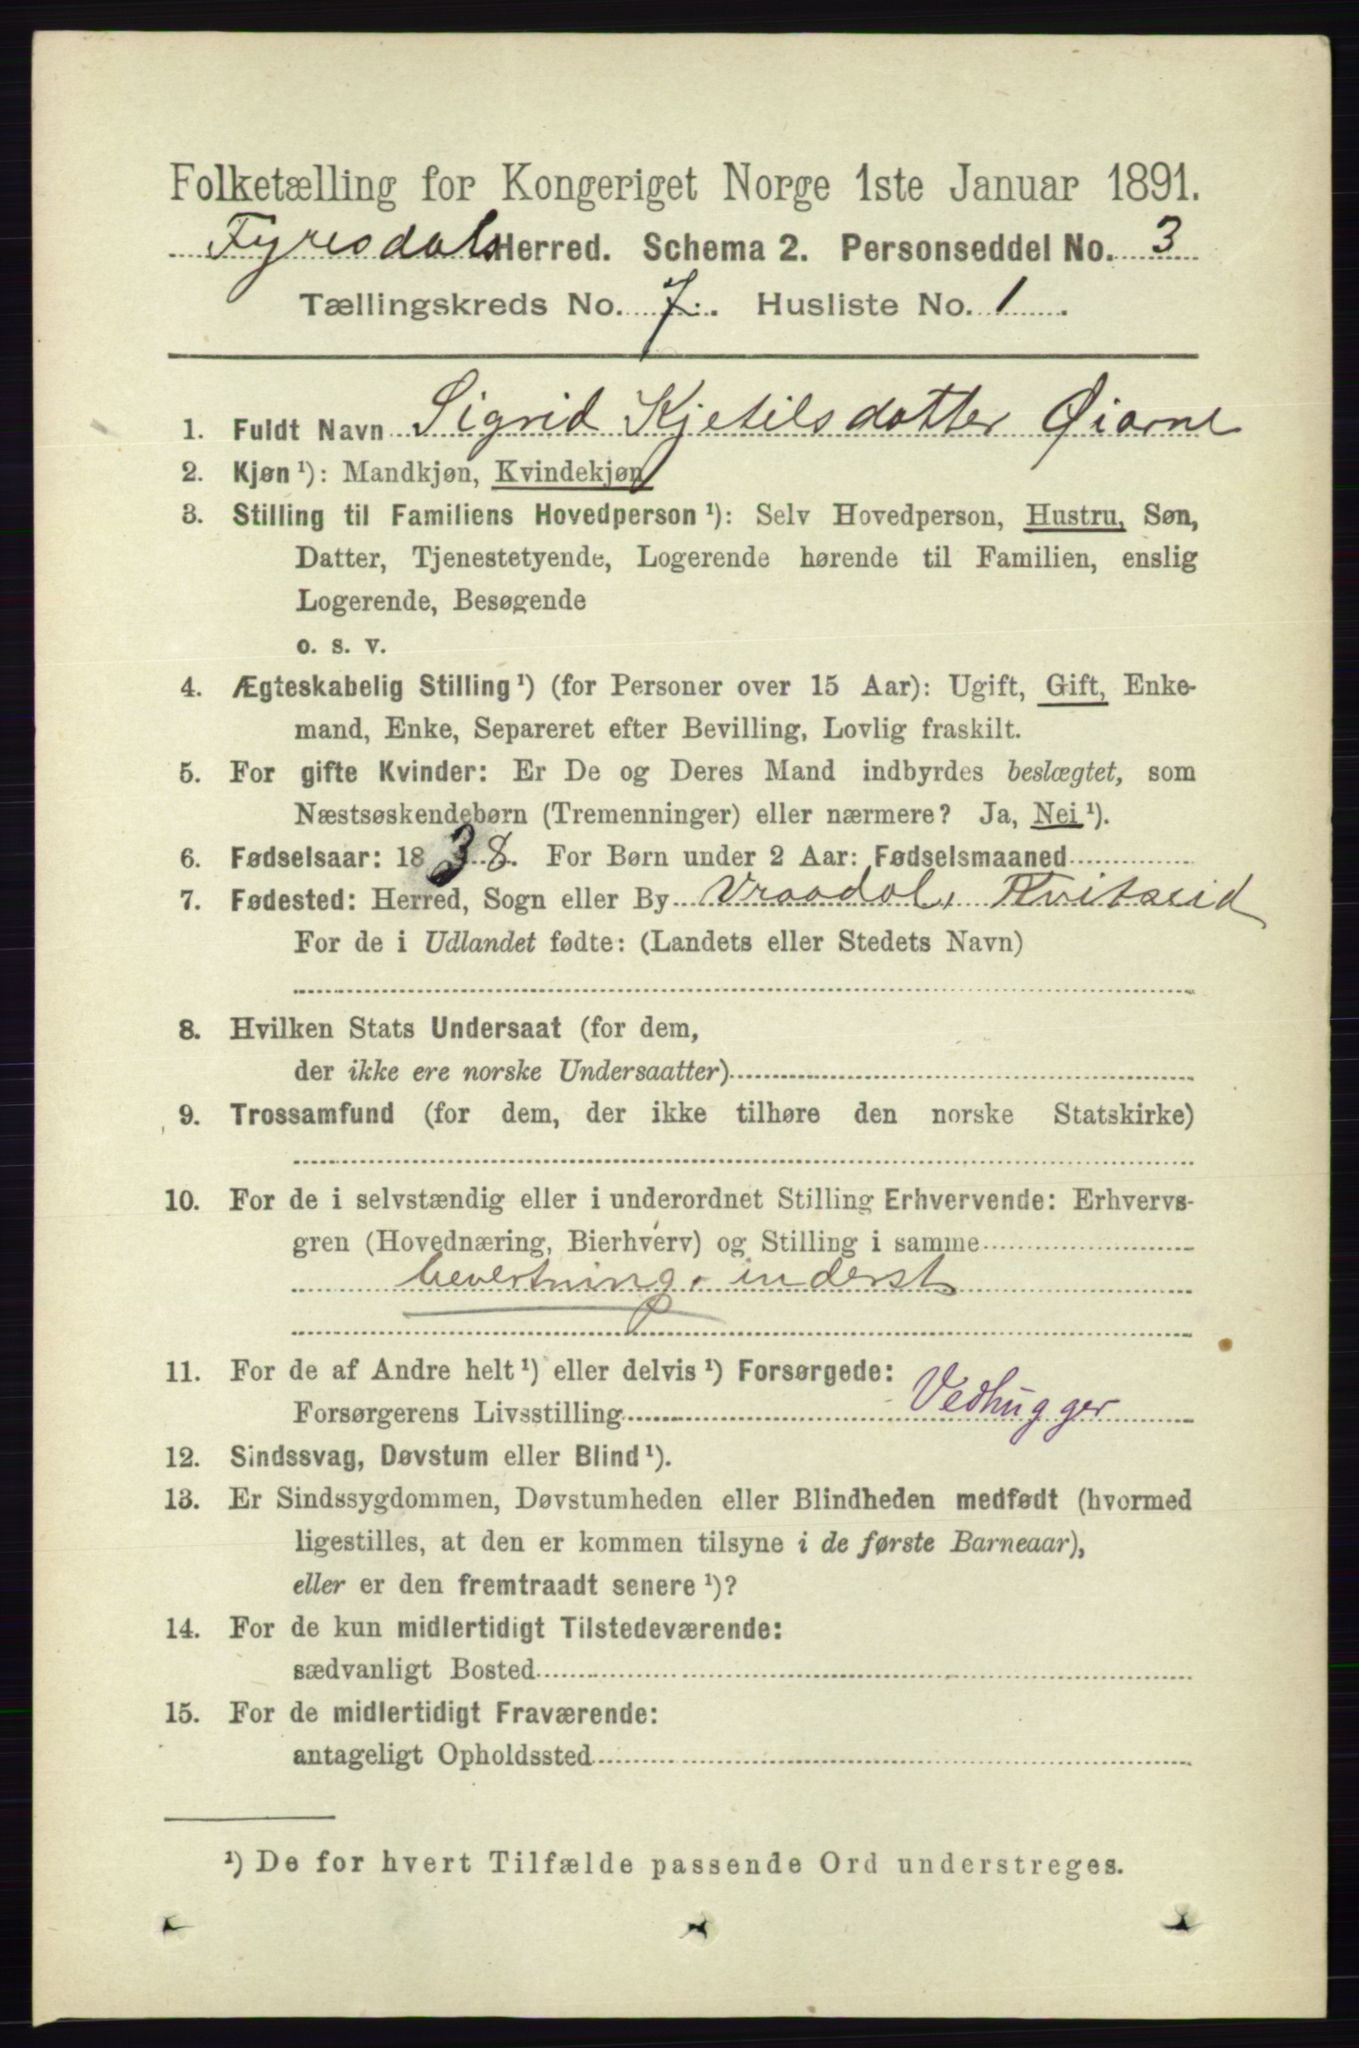 Folketælling for Kongeriget Norge 1ste Januar 1891.
Fyresdals Herred. Schema 2. Personseddel No. 3
Tællingskreds No. 7. Husliste No. 1.
1. Fuldt Navn Sigrid Kjetilsdatter Øiarne
2. Kjøn ¹): Mandkjøn, Kvindekjøn
3. Stilling til Familiens Hovedperson ¹): Selv Hovedperson, Hustru, Søn,
Datter, Tjenestetyende, Logerende hørende til Familien, enslig
Logerende, Besøgende
o. s. v.
4. Ægteskabelig Stilling ¹) (for Personer over 15 Aar): Ugift, Gift, Enke-
mand, Enke, Separeret efter Bevilling, Lovlig fraskilt.
5. For gifte Kvinder: Er De og Deres Mand indbyrdes beslægtet, som
Næstsøskendebørn (Tremenninger) eller nærmere? Ja, Nei ¹).
6. Fødselsaar: 1838. For Børn under 2 Aar: Fødselsmaaned
7. Fødested: Herred, Sogn eller By Vraadal, Kvitseid
For de i Udlandet fødte: (Landets eller Stedets Navn)
8. Hvilken Stats Undersaat (for dem,
der ikke ere norske Undersaatter)
9. Trossamfund (for dem, der ikke tilhøre den norske Statskirke)
10. For de i selvstændig eller i underordnet Stilling Erhvervende: Erhvervs-
gren (Hovednæring, Bierhverv) og Stilling i samme
bevertning, inderst
11. For de af Andre helt ¹) eller delvis ¹) Forsørgede:
Forsørgerens Livsstilling Vedhugger
12. Sindssvag, Døvstum eller Blind ¹).
13. Er Sindssygdommen, Døvstumheden eller Blindheden medfødt (hvormed
ligestilles, at den er kommen tilsyne i de første Barneaar),
eller er den fremtraadt senere ¹)?
14. For de kun midlertidigt Tilstedeværende:
sædvanligt Bosted
15. For de midlertidigt Fraværende:
antageligt Opholdssted
¹) De for hvert Tilfælde passende Ord understreges.